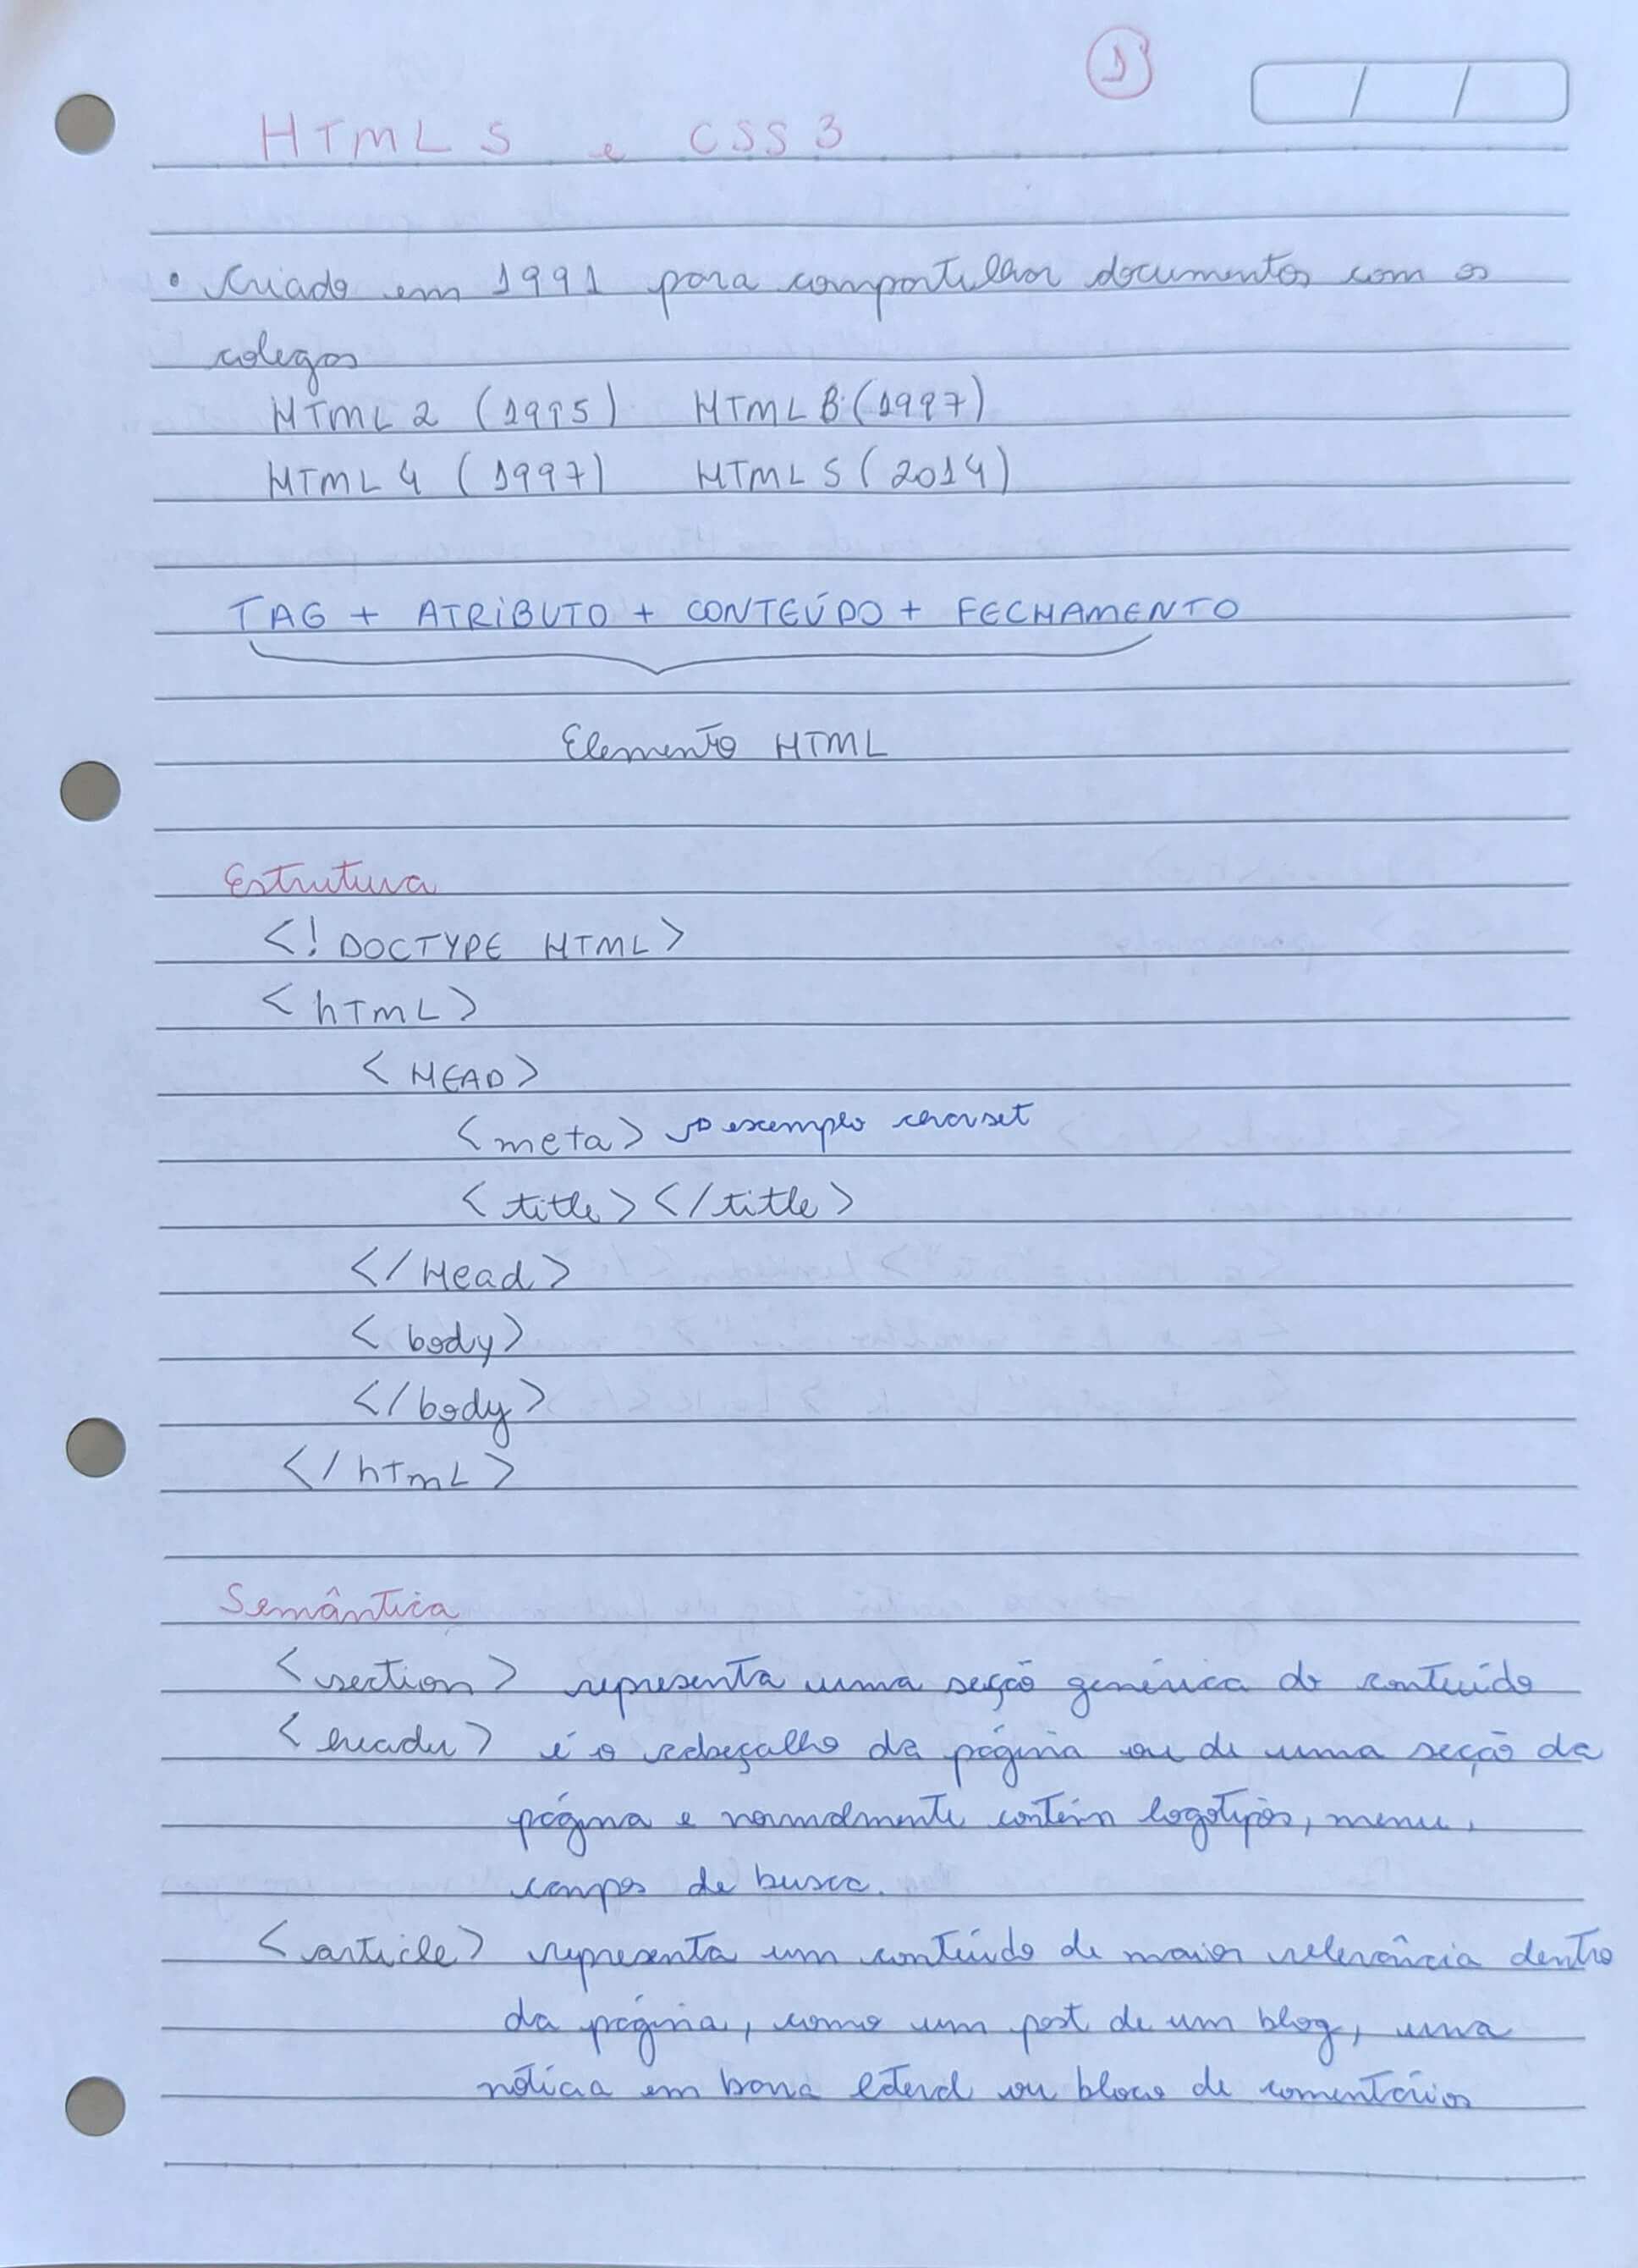 1
HTML 5 e CSS 3
• Criado em 1991 para compartilhar documentos com os
colegas
HTML 2 (1995) HTML 3 (1997)
HTML 4 (1997) HTML 5 (2014)
TAG + ATRIBUTO + CONTEÚDO + FECHAMENTO
Elemento HTML
Estrutura
<! DOCTYPE HTML>
<hTmL>
<HEAD>
<meta> → exemplo charset
<title></title>
</Head>
<body>
</body>
</hTmL>
Semântica
<section> representa uma seção genérica de conteúdo
<header> é o cabeçalho da página ou de uma seção da
página e normalmente contém logotipos, menu,
campos de busca.
<article> representa um conteúdo de maior relevância dentro
da página, como um post de um blog, uma
notícia em barra lateral ou bloco de comentários